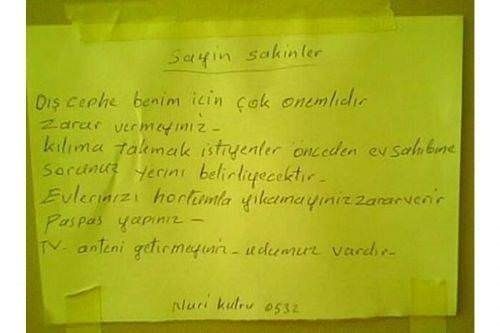 Sayin sakinler
Dış cephe benim için çok önemlidir
Zarar vermeyiniz -
Kılıma takmak istiyenler önceden ev sahibine
sorunuz yerini belirliyecektir -
Evlerinizi hortumla yıkamayınız zarar verir
Paspas yapınız -
TV - anteni getirmeyiniz - udumuz vardır -
Nuri Kutru 0532